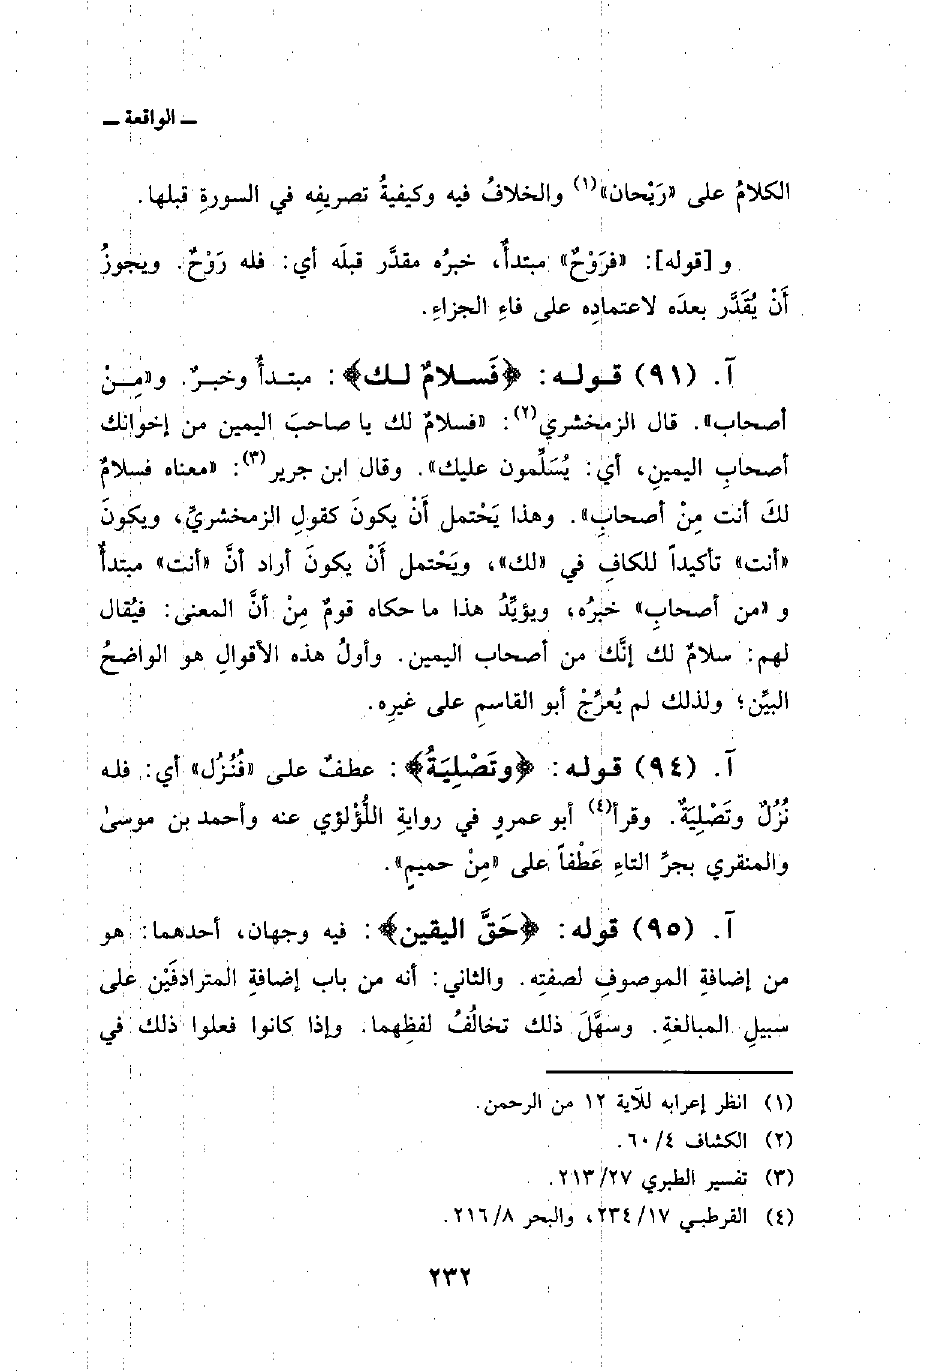 ــ الواقعة ــ
الكلامُ على «رَيْحان»(١) والخلافُ فيه وكيفيةُ تصريفِه في السورةِ قبلها.
و [قوله]: «فَرَوْحٌ» مبتدأٌ، خبرُه مقدَّر قبلَه أي: فله رَوْحٌ. ويجوزُ
أَنْ يُقَدَّر بعدَه لاعتمادِه على فاءِ الجزاءِ.
آ. (٩١) قوله: ﴿فَسلامٌ لك﴾: مبتدأٌ وخبرٌ. و«مِنْ
أصحاب». قال الزمخشري(٢): «فسلامٌ لك يا صاحبَ اليمين من إخوانك
أصحابِ اليمينِ، أي: يُسَلِّمون عليك». وقال ابن جرير(٣): «معناه فسلامٌ
لكَ أنت مِنْ أصحابِ». وهذا يَحْتمل أَنْ يكونَ كقولِ الزمخشريِّ، ويكونَ
«أنت» تأكيداً للكافِ في «لك»، ويَحْتمل أَنْ يكونَ أراد أنَّ «أنت» مبتدأٌ
و «من أصحابِ» خبرُه، ويؤيِّدُ هذا ما حكاه قومٌ مِنْ أنَّ المعنى: فيُقال
لهم: سلامٌ لك إنَّك من أصحاب اليمين. وأولُ هذه الأقوالِ هو الواضحُ
البيِّن؛ ولذلك لم يُعَرِّجْ أبو القاسمِ على غيرِه.
آ. (٩٤) قوله: ﴿وتَصْلِيَةُ﴾: عطفٌ على «فَنُزُل» أي: فله
نُزُلٌ وتَصْلِيَةٌ. وقرأ(٤) أبو عمروٍ في روايةِ اللُّؤلؤي عنه وأحمد بن موسىٰ
والمنقري بجرِّ التاءِ عَطْفاً على «مِنْ حميمٍ».
آ. (٩٥) قوله: ﴿حَقَّ اليقين﴾: فيه وجهان، أحدهما: هو
من إضافةِ الموصوفِ لصفتِه. والثاني: أنه من باب إضافةِ المترادفَيْن على
سبيلِ المبالغةِ. وسهَّلَ ذلك تخالُفُ لفظِهما. وإذا كانوا فعلوا ذلك في
(١) انظر إعرابه للآية ١٢ من الرحمن.
(٢) الكشاف ٤/ ٦٠.
(٣) تفسير الطبري ٢٧/ ٢١٣.
(٤) القرطبي ١٧/ ٢٣٤، والبحر ٨/ ٢١٦.
٢٣٢